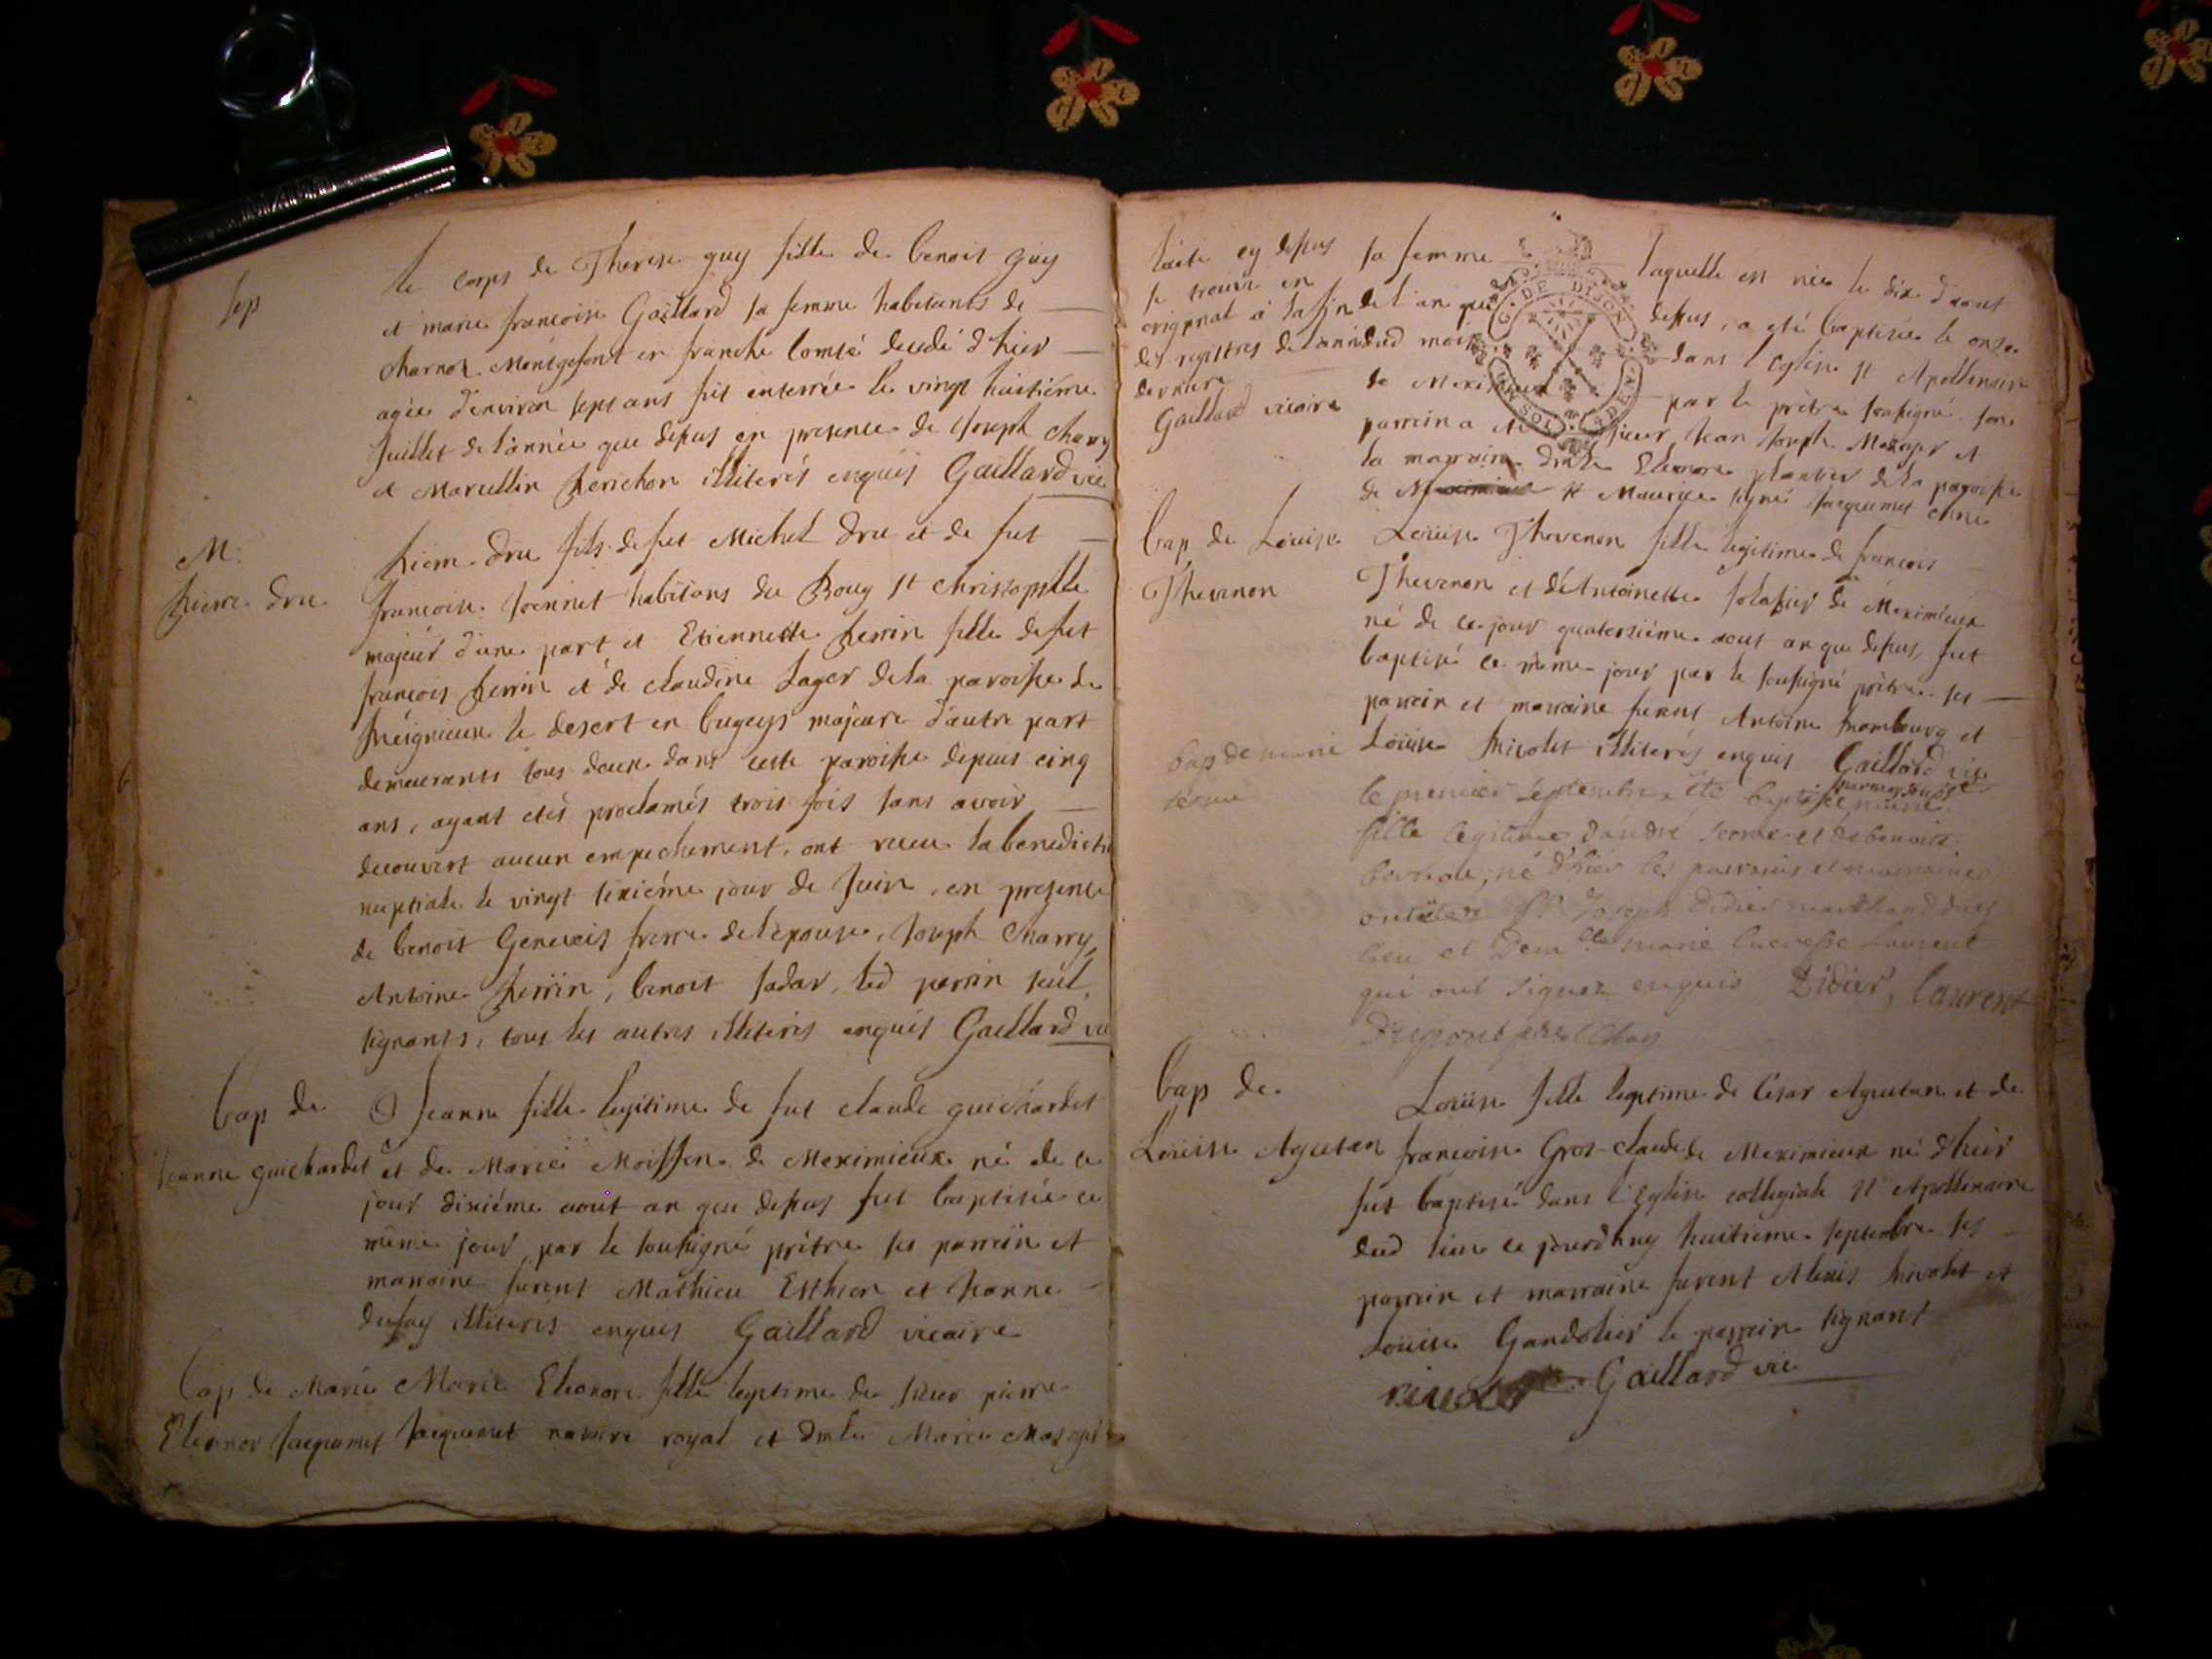 Sep
le corps de Therese guy fille de benoit guy
et marie francoise Gaillard sa femme habitants de
charnoz Montgefont en franche Comté decedé d'hier
agée d'environ sept ans fut enterrée le vingt huitiéme
Juillet de l'année que dessus en presence de Joseph charry
et Marcellin Perichon illiterés enquis Gaillard vic
M:
Pierre dru
Pierre dru fils de fut Michel dru et de fut
francoise Joennet habitans du Bourg St Christophle
majeur d'une part et Etiennette Perrin fille de fut
francois Perrin et de claudine Lager de la paroisse de
Preignieux le desert en bugeys majeure d'autre part
demeurants tous deux dans cette paroisse depuis cinq
ans, ayant etés proclamés trois fois sans avoir
decouvert aucun empechement, ont receu la benedicti
nuptiale le vingt sixiéme jour de Juin, en presence
de benoit Genevois frere de l'epouse, Joseph Charry,
Antoine Perrin, benoit Jadar, led perrin seul
signants, tous les autres illiterés enquis Gaillard vic
bap de
Jeanne guichardet
Jeanne fille legitime de fut claude guichardet
et de Marie Moisson de Meximieux né de ce
jour dixiéme aout an que dessus fut baptisée ce
même jour, par le soussigné prêtre ses parrein et
marraine furent Mathieu Esthior et Jeanne
dufay illiterés enquis Gaillard vicaire
bap de Marie
Eleonor Jacquemet
Marie Eleonore fille legitime de sieur pierre
Jacquemet notaire royal et dmlle Marie Messager
l'acte cy dessus
se trouve en
original à la fin
des registres de l'année
derniere
Gaillard vicaire
sa femme laquelle est née le dix d'aout
de l'an que dessus, a eté baptisée le onze
dud mois dans l'eglise St Apollinaire
de Meximieux par le prêtre soussigné son
parrein a eté sieur Jean Joseph Messager et
la marraine dmlle Eleonore plantier de la paroisse
de St Maurice signé Jacquemet chne
bap de Louise
Thevenon
Loüise Thevenon fille legitime de francois
Thevenon et d'Antoinette Jolasier de Meximieux
né de ce jour quatorziéme aout an que dessus, fut
baptisé ce même jour par le soussigné prêtre. ses
parrein et marraine furent Antoine Trombourg et
Loüise Trivolet illiterés enquis Gaillard vic
bap de marie
le premier septembre a été baptisée marie
fille legitime d'andré et de benoite
né d'hier les parrains et marraines
ont été Sr Joseph Didier marchand dud
lieu et Demlle marie lucresse Laurent
qui ont signez enquis Didier, laurent
bap de
Louise Agutan
Loüise fille legitime de César Agutan et de
francoise Gros-claude de Meximieux né d'hier
fut baptisé dans l'Eglise collegiale St Apollinaire
dud lieu ce jourd'huy huitiéme septembre ses
parrein et marraine furent Alexis Trivolet et
Loüise Gandolier le parrein signant
Gaillard vic